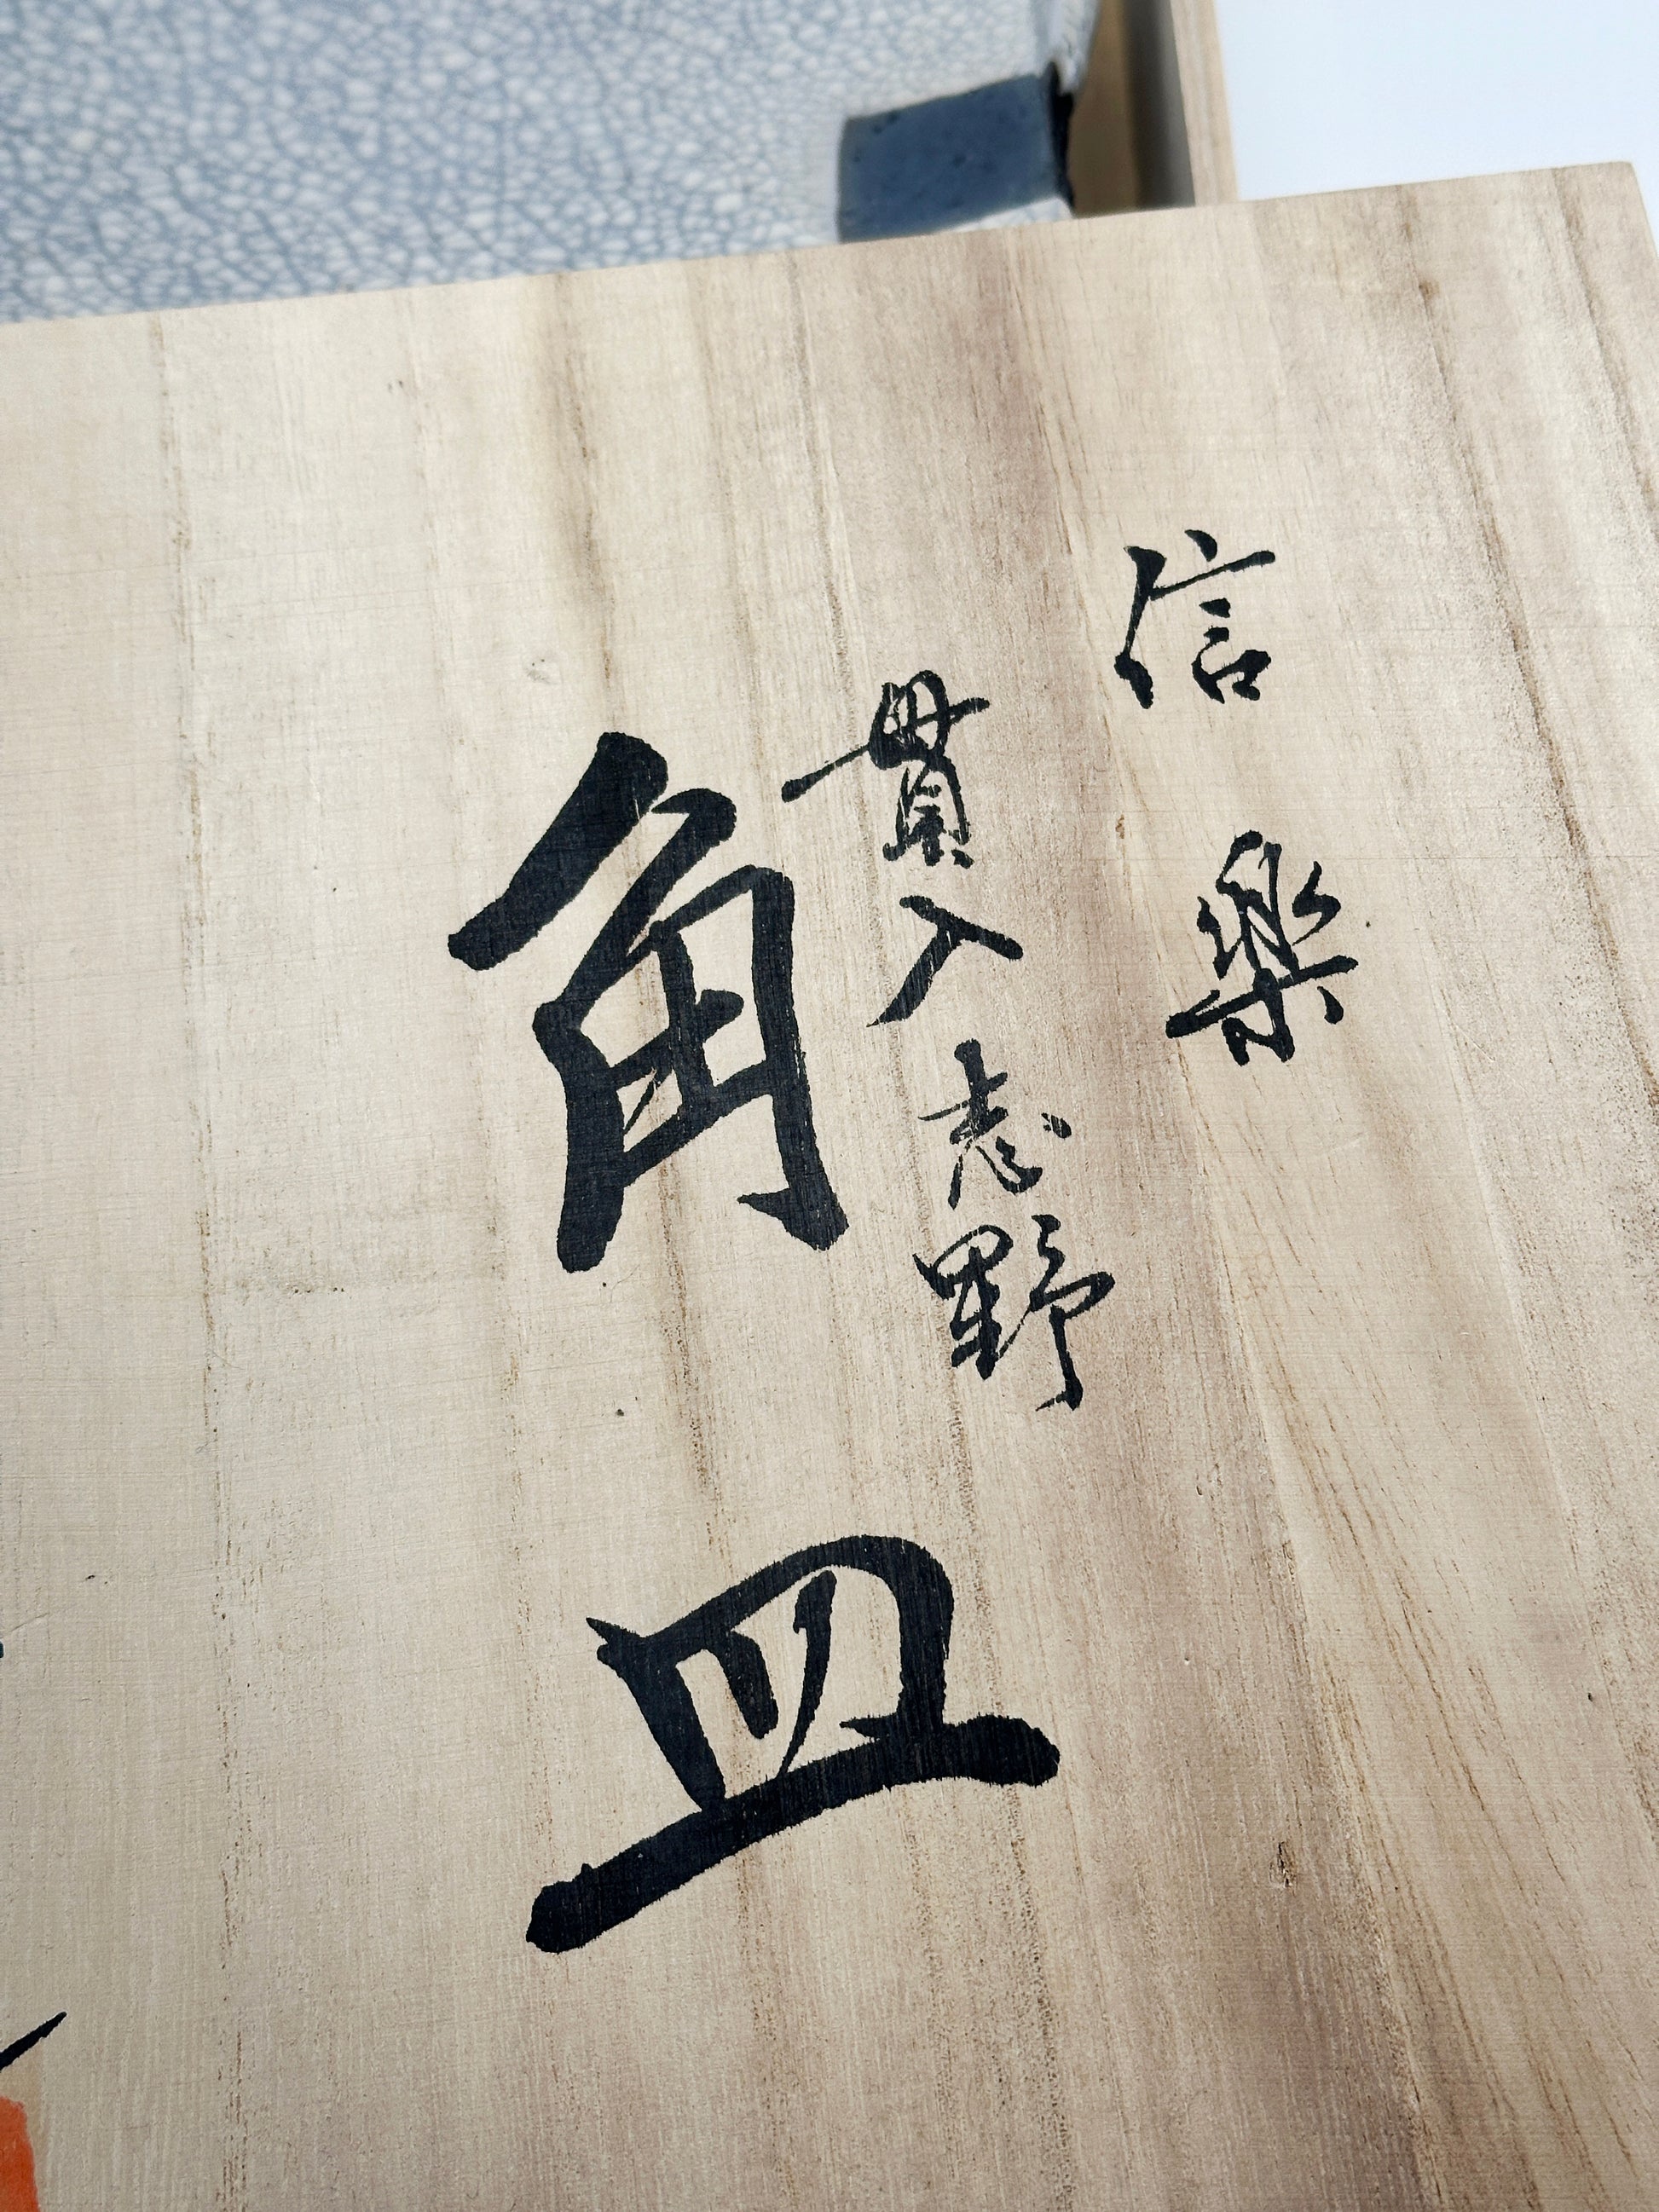 信楽
貫入志野
角皿